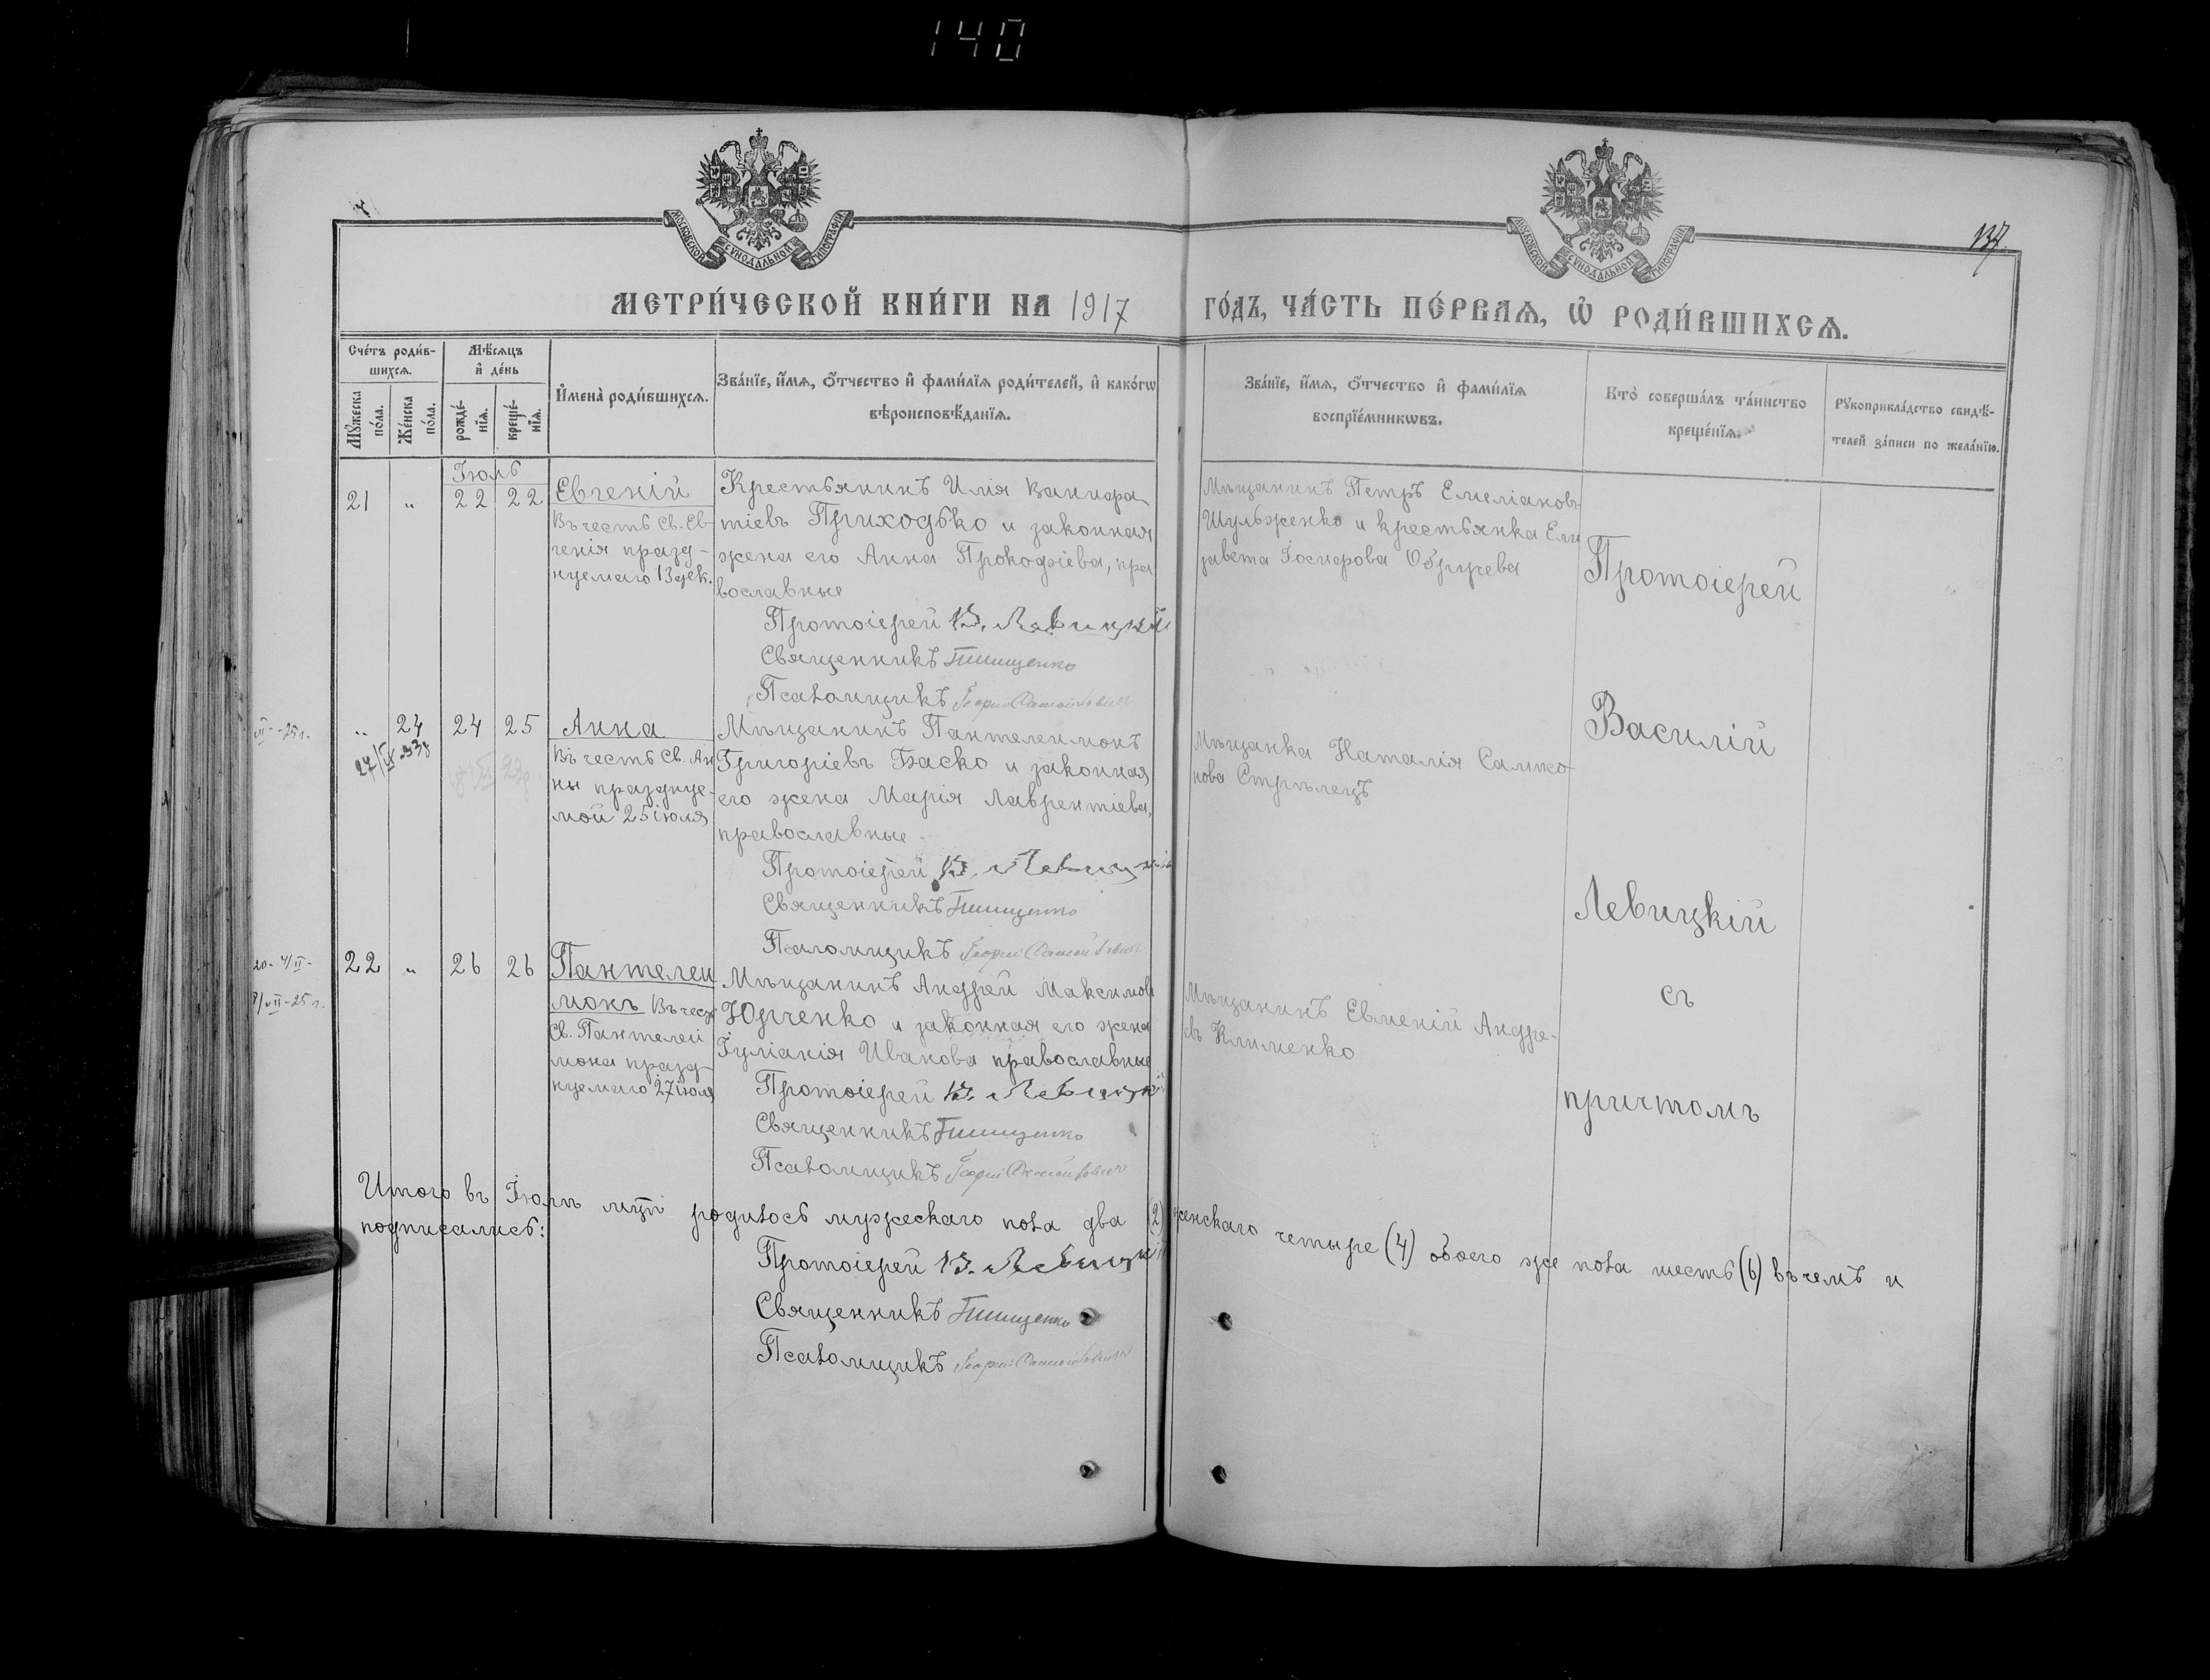 140
МОСКОВСКОЙ СѴНОДАЛЬНОЙ ТИПОГРАФІИ
МОСКОВСКОЙ СѴНОДАЛЬНОЙ ТИПОГРАФІИ
137.
МЕТРИ́ЧЕСКОЙ КНИ́ГИ НА 1917 ГО́ДЪ, ЧА́СТЬ ПЕ́РВАѦ, Ѡ РОДИ́ВШИХСѦ.
Сче́тъ роди́в-
шихсѧ.
Мѣ́сѧцъ
и҆ де́нь
Мꙋ́жеска по́ла.
Же́нска по́ла.
рожде́-
нїѧ.
креще́-
нїѧ.
И҆мена̀ роди́вшихсѧ.
Зва́нїе, и҆́мѧ, ѻ҆́тчество и҆ фами́лїѧ роди́телей, и҆ како́гѡ
вѣроисповѣ́данїѧ.
Зва́нїе, и҆́мѧ, ѻ҆́тчество и҆ фами́лїѧ
воспрїе́мникѡвъ.
Кто̀ соверша́лъ та́инство
креще́нїѧ.
Рꙋкоприкла́дство свидѣ́-
телей за́писи по жела́нїю.
Іюль
21 " 22 22 Евгеній
Въ честь Св. Ев-
генія празд-
нуемаго 13 дек.
Крестьянинъ Илія
тіевъ Приходько и законная
жена его Анна Прокофіева, пра
вославные
Протоіерей В. Левицкій
Священникъ
Псаломщикъ Георгій
Мѣщанинъ Петръ Емеліановъ
Шульженко и крестьянка Ели
завета
Протоіерей
Василій
Левицкій
съ
причтомъ
" 24 24 25 Анна
27/IX-33г
Въ честь Св. Ан
ны празднуе-
мой 25 іюля
Мѣщанинъ Пантелеимонъ
Григоріевъ Баско и законная
его жена Марія Лаврентіева,
православные
Протоіерей В. Левицкій
Священникъ
Псаломщикъ Георгій
Мѣщанка Наталія Сампсо-
нова Стрѣлецъ
22 " 26 26 Пантелеи
монъ Въ честь
Св. Пантелеи
мона празд-
нуемаго 27 іюля
Мѣщанинъ Андрей Максимовъ
Юрченко и законная его жена
Іуліанія Иванова православные
Протоіерей В. Левицкій
Священникъ
Псаломщикъ Георгій
Мѣщанинъ Евменій Андре-
евъ Клименко
Итого въ Іюлѣ мцѣ родилось мужескаго пола два (2) женскаго четыре (4) обоего же пола шесть (6) въ чемъ и
подписались:
Протоіерей В. Левицкій
Священникъ
Псаломщикъ Георгій